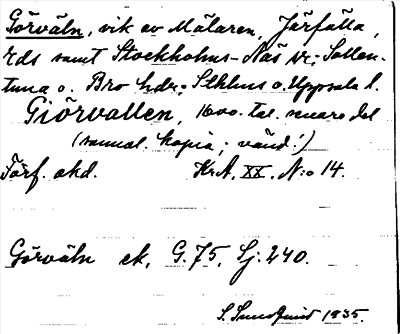 Görväln, vik av Mälaren, Järfälla,
rds samt Stockholms-Näs sr; Sollen-
tuna o. Bro hdr; Sthlms o. Uppsala l.
Giörvallen, 1600-tal. senare del
(samml. kopia; vänd!)
Förf. okd. KrA. XX. N:o 14.
Görväln ek. G. 75, Sj: 240.
S. Sundquist 1935.